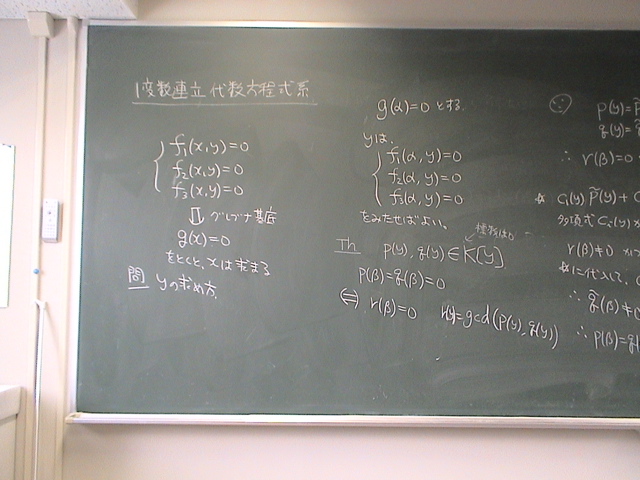 1変数連立代数方程式系
f₁(x,y)=0
f₂(x,y)=0
f₃(x,y)=0
⇓ グレブナ基底
g(x)=0
をとくと、xは求まる
問 yの求め方.
g(α)=0 とする.
yは、
f₁(α,y)=0
f₂(α,y)=0
f₃(α,y)=0
をみたせばよい.
標数は0
Th p(y), q(y) ∈ K[y]
p(β)=q(β)=0
⇔ r(β)=0 r(y)=gcd(p(y), q(y))
p(y)=p̃
q(y)=q̃
∴ r(β)=0
☆ C₁(y) p̃(y)+C
多項式 C₁(y)
r(β)≠0
☆に代入して、C
∴ q̃(β)≠0
∴ p(β)=q(